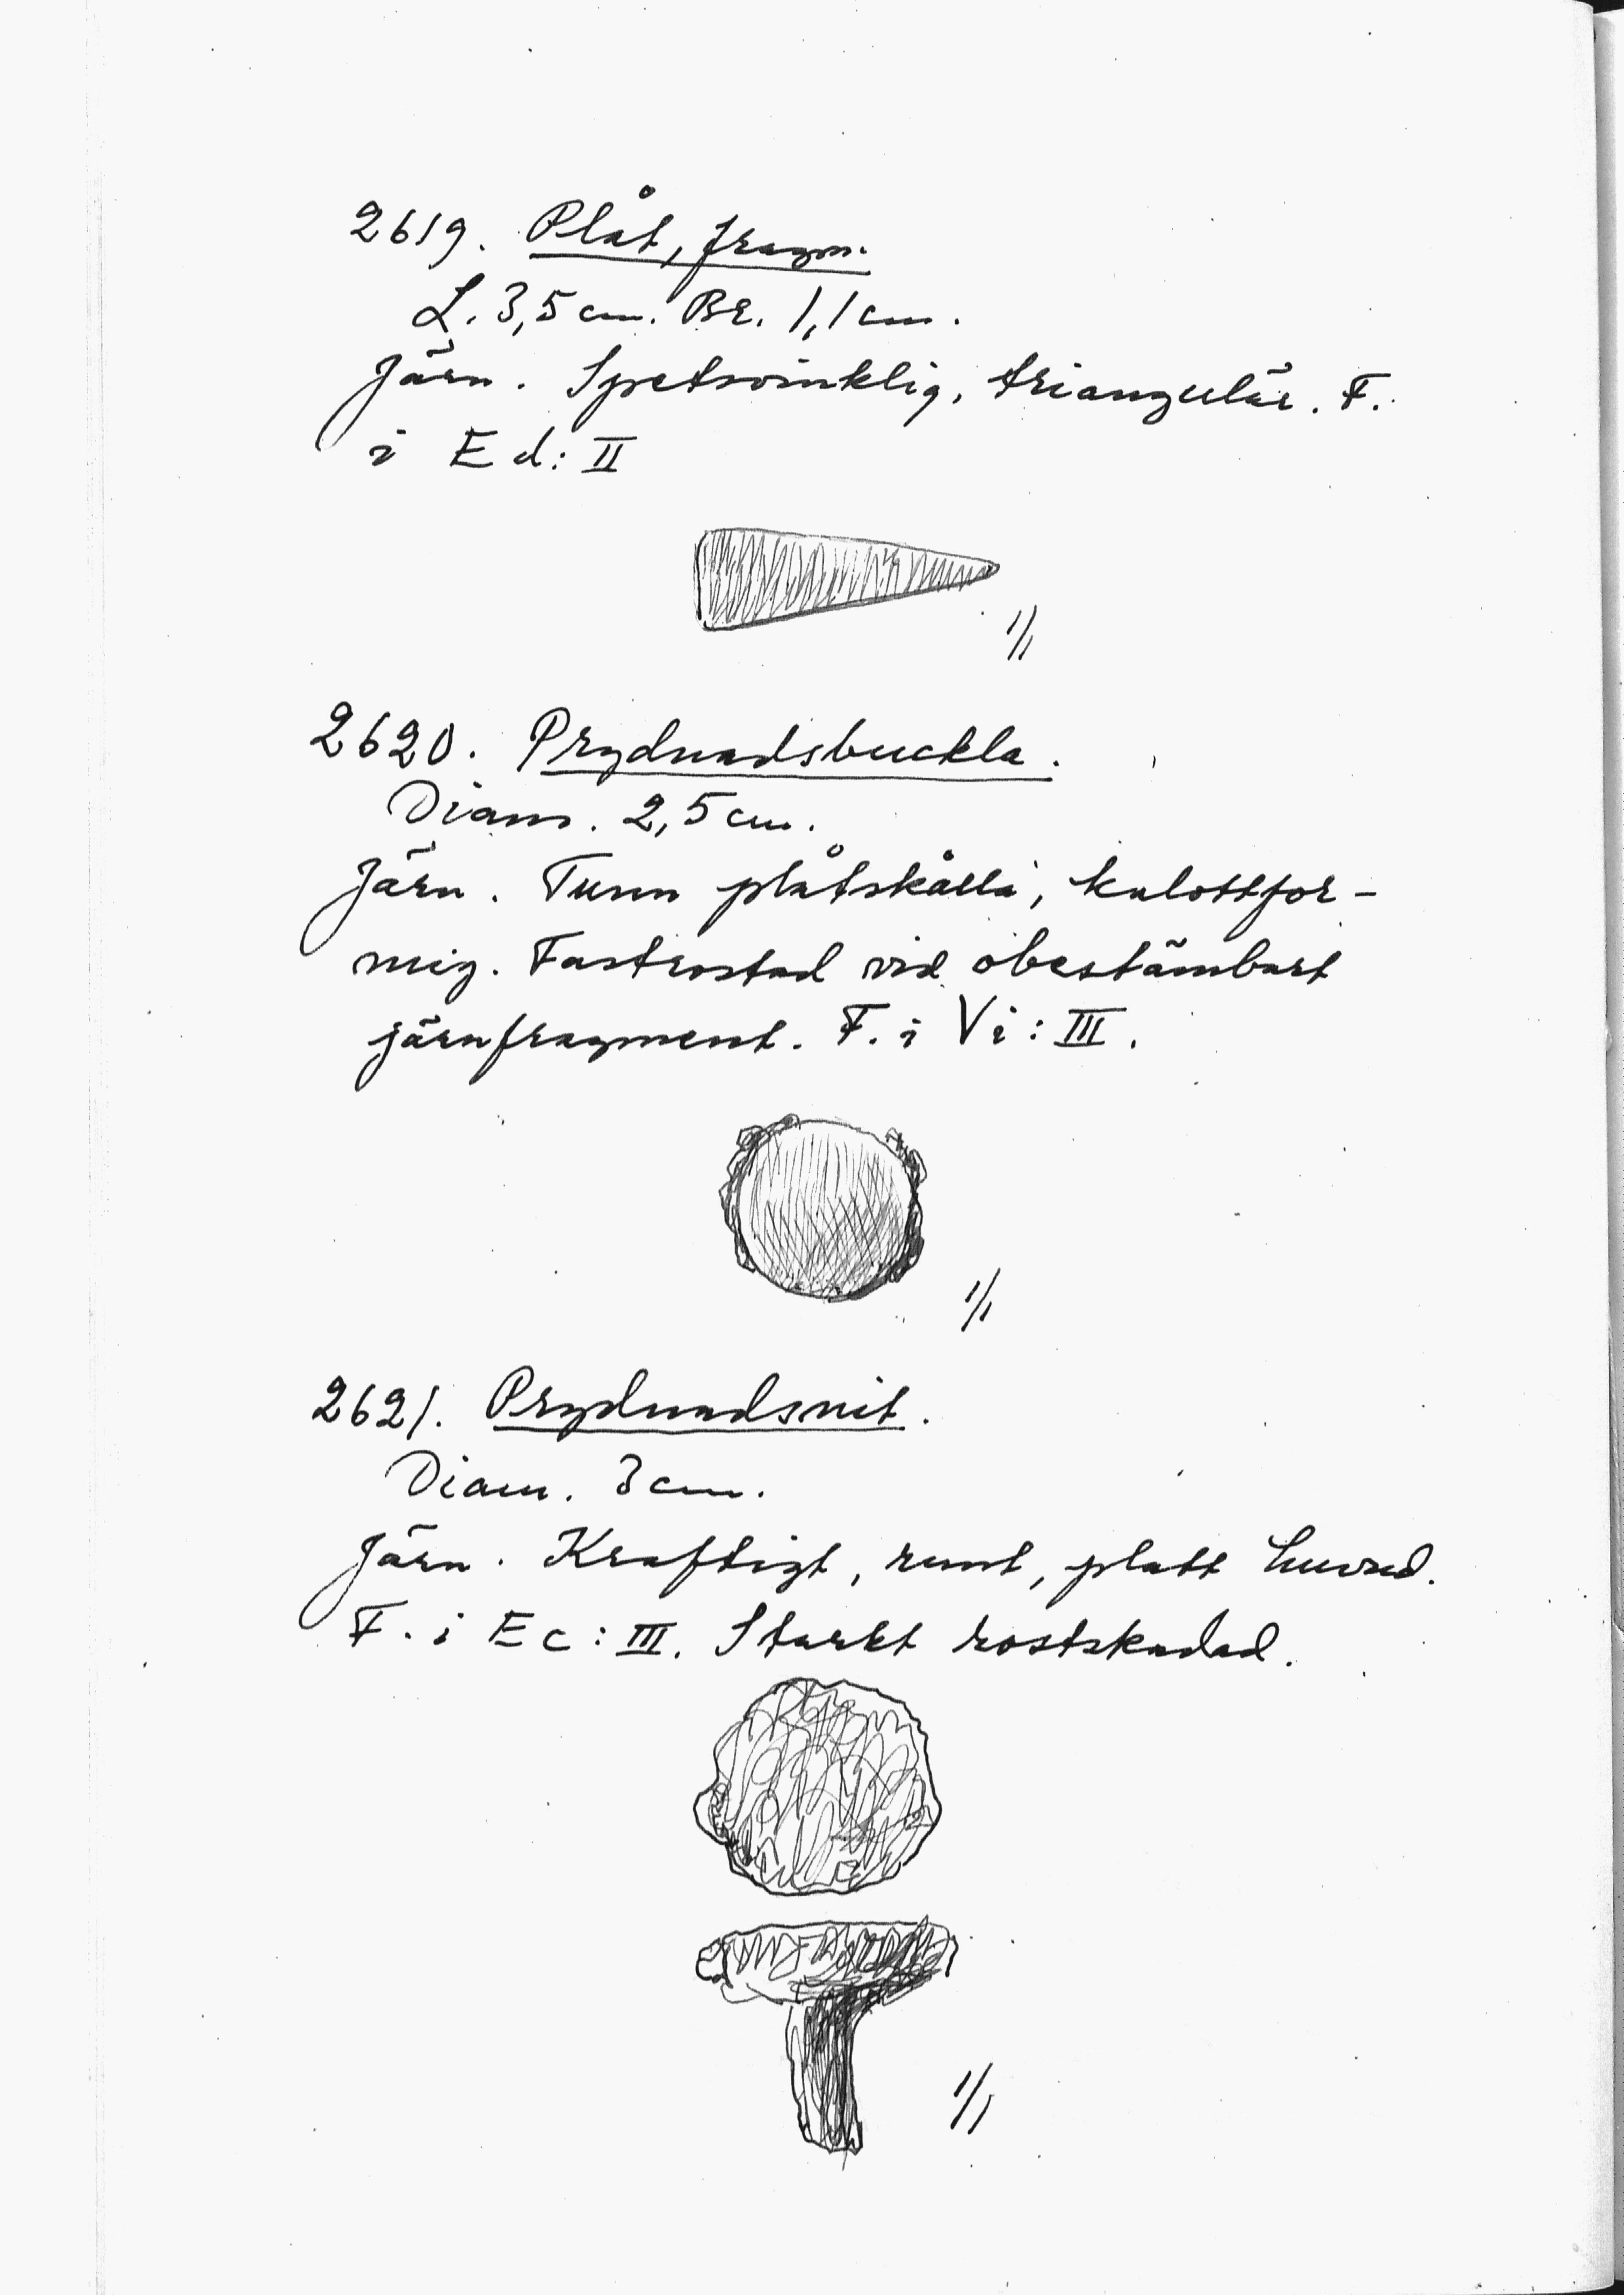 2619. Plåt, fragm.
L. 3,5 cm. Br. 1,1 cm.
Järn. Spetsvinklig, triangulär. F.
i Ed: II
1/1
2620. Prydnadsbuckla.
Diam. 2,5 cm.
Järn. Tunn plåtskålla, kalottfor-
mig. Fastrostad vid obestämbart
järnfragment. F. i Vi: III.
1/1
2621. Prydnadsnit.
Diam. 3 cm.
Järn. Kraftigt, runt, platt huvud.
F. i Ec: III. Starkt rostskadad.
1/1